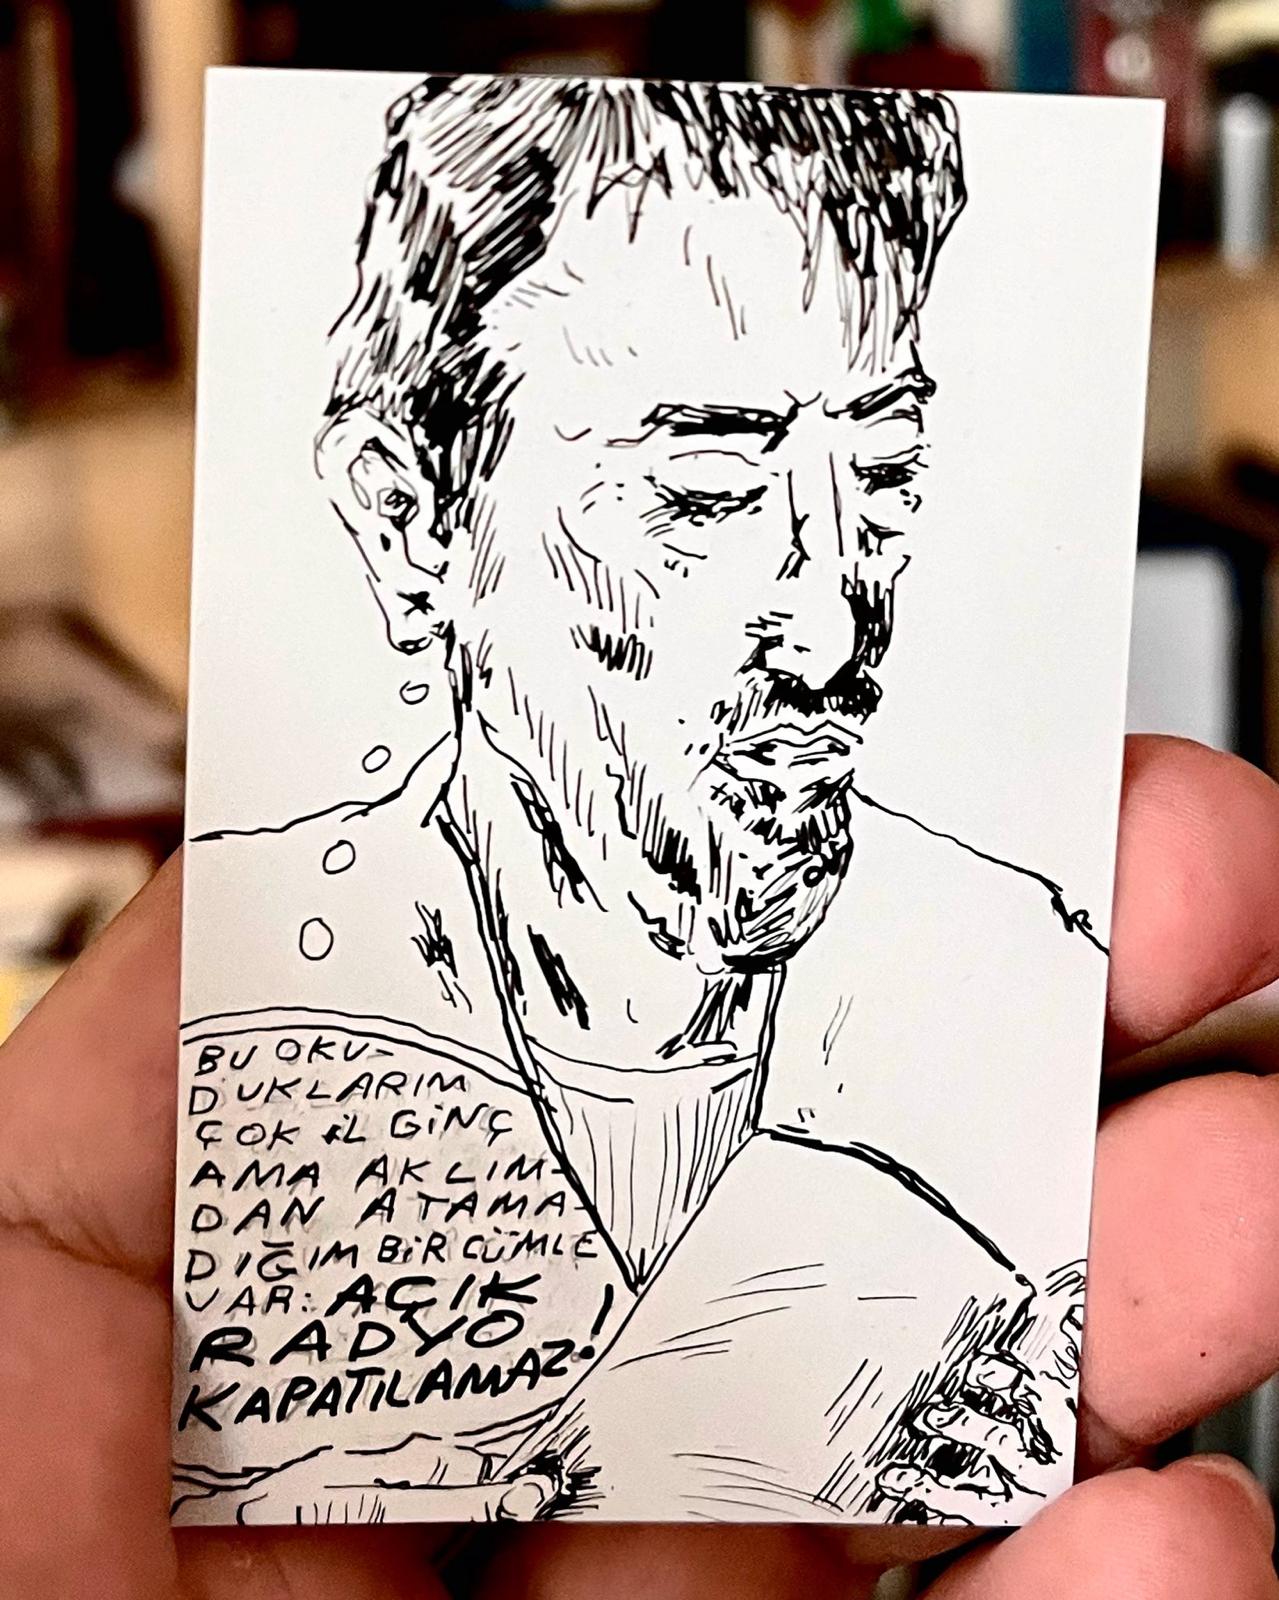 BU OKU-
DUKLARIM
ÇOK İLGİNÇ
AMA AKLIM-
DAN ATAMA-
DIĞIM BİR CÜMLE
VAR: AÇIK
RADYO
KAPATILAMAZ!